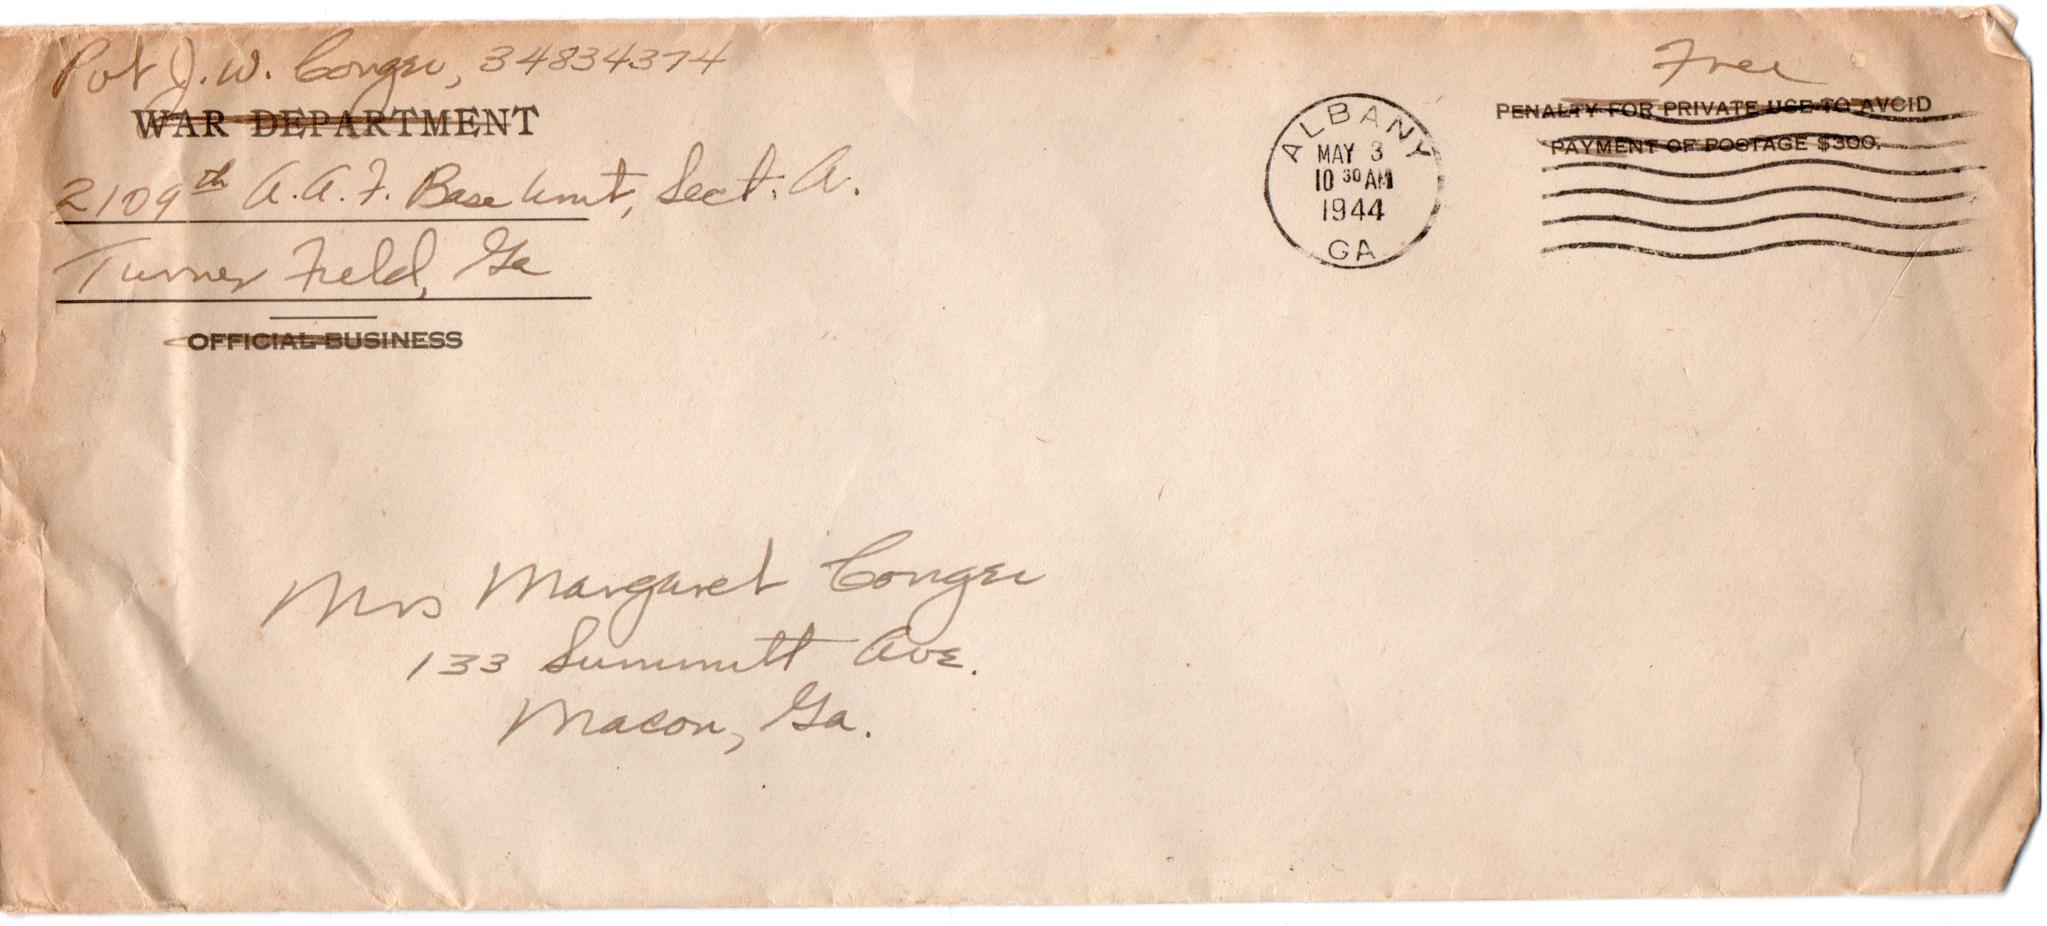 Pvt J. W. Conger, 34834374
WAR DEPARTMENT
2109th A.A.F. Base Unit, Sect. A.
Turner Field, Ga
OFFICIAL BUSINESS
ALBANY
MAY 3
10 30 AM
1944
GA
Free
PENALTY FOR PRIVATE USE TO AVOID
PAYMENT OF POSTAGE $300.
Mrs Margaret Conger
133 Summitt Ave.
Macon, Ga.